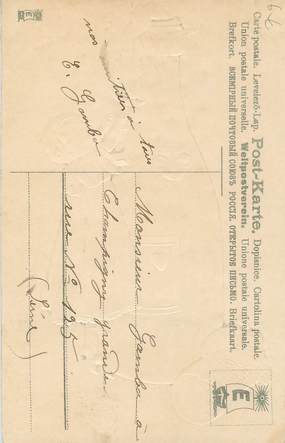 Carte postale. Levelező-Lap. Post-Karte. Dopisnice. Cartolina postale.
Union postale universelle. Weltpostverein. Unione postale universale.
Brefkort. ВСЕМІРНЫЙ ПОЧТОВЫЙ СОЮЗЪ. РОССІЯ. ОТКРЫТОЕ ПИСЬМО. Briefkaart.
E
E
nos amitiés à tous
E. Gamber
Monsieur Gamber à
Champigny grande
rue No 125
(Seine)